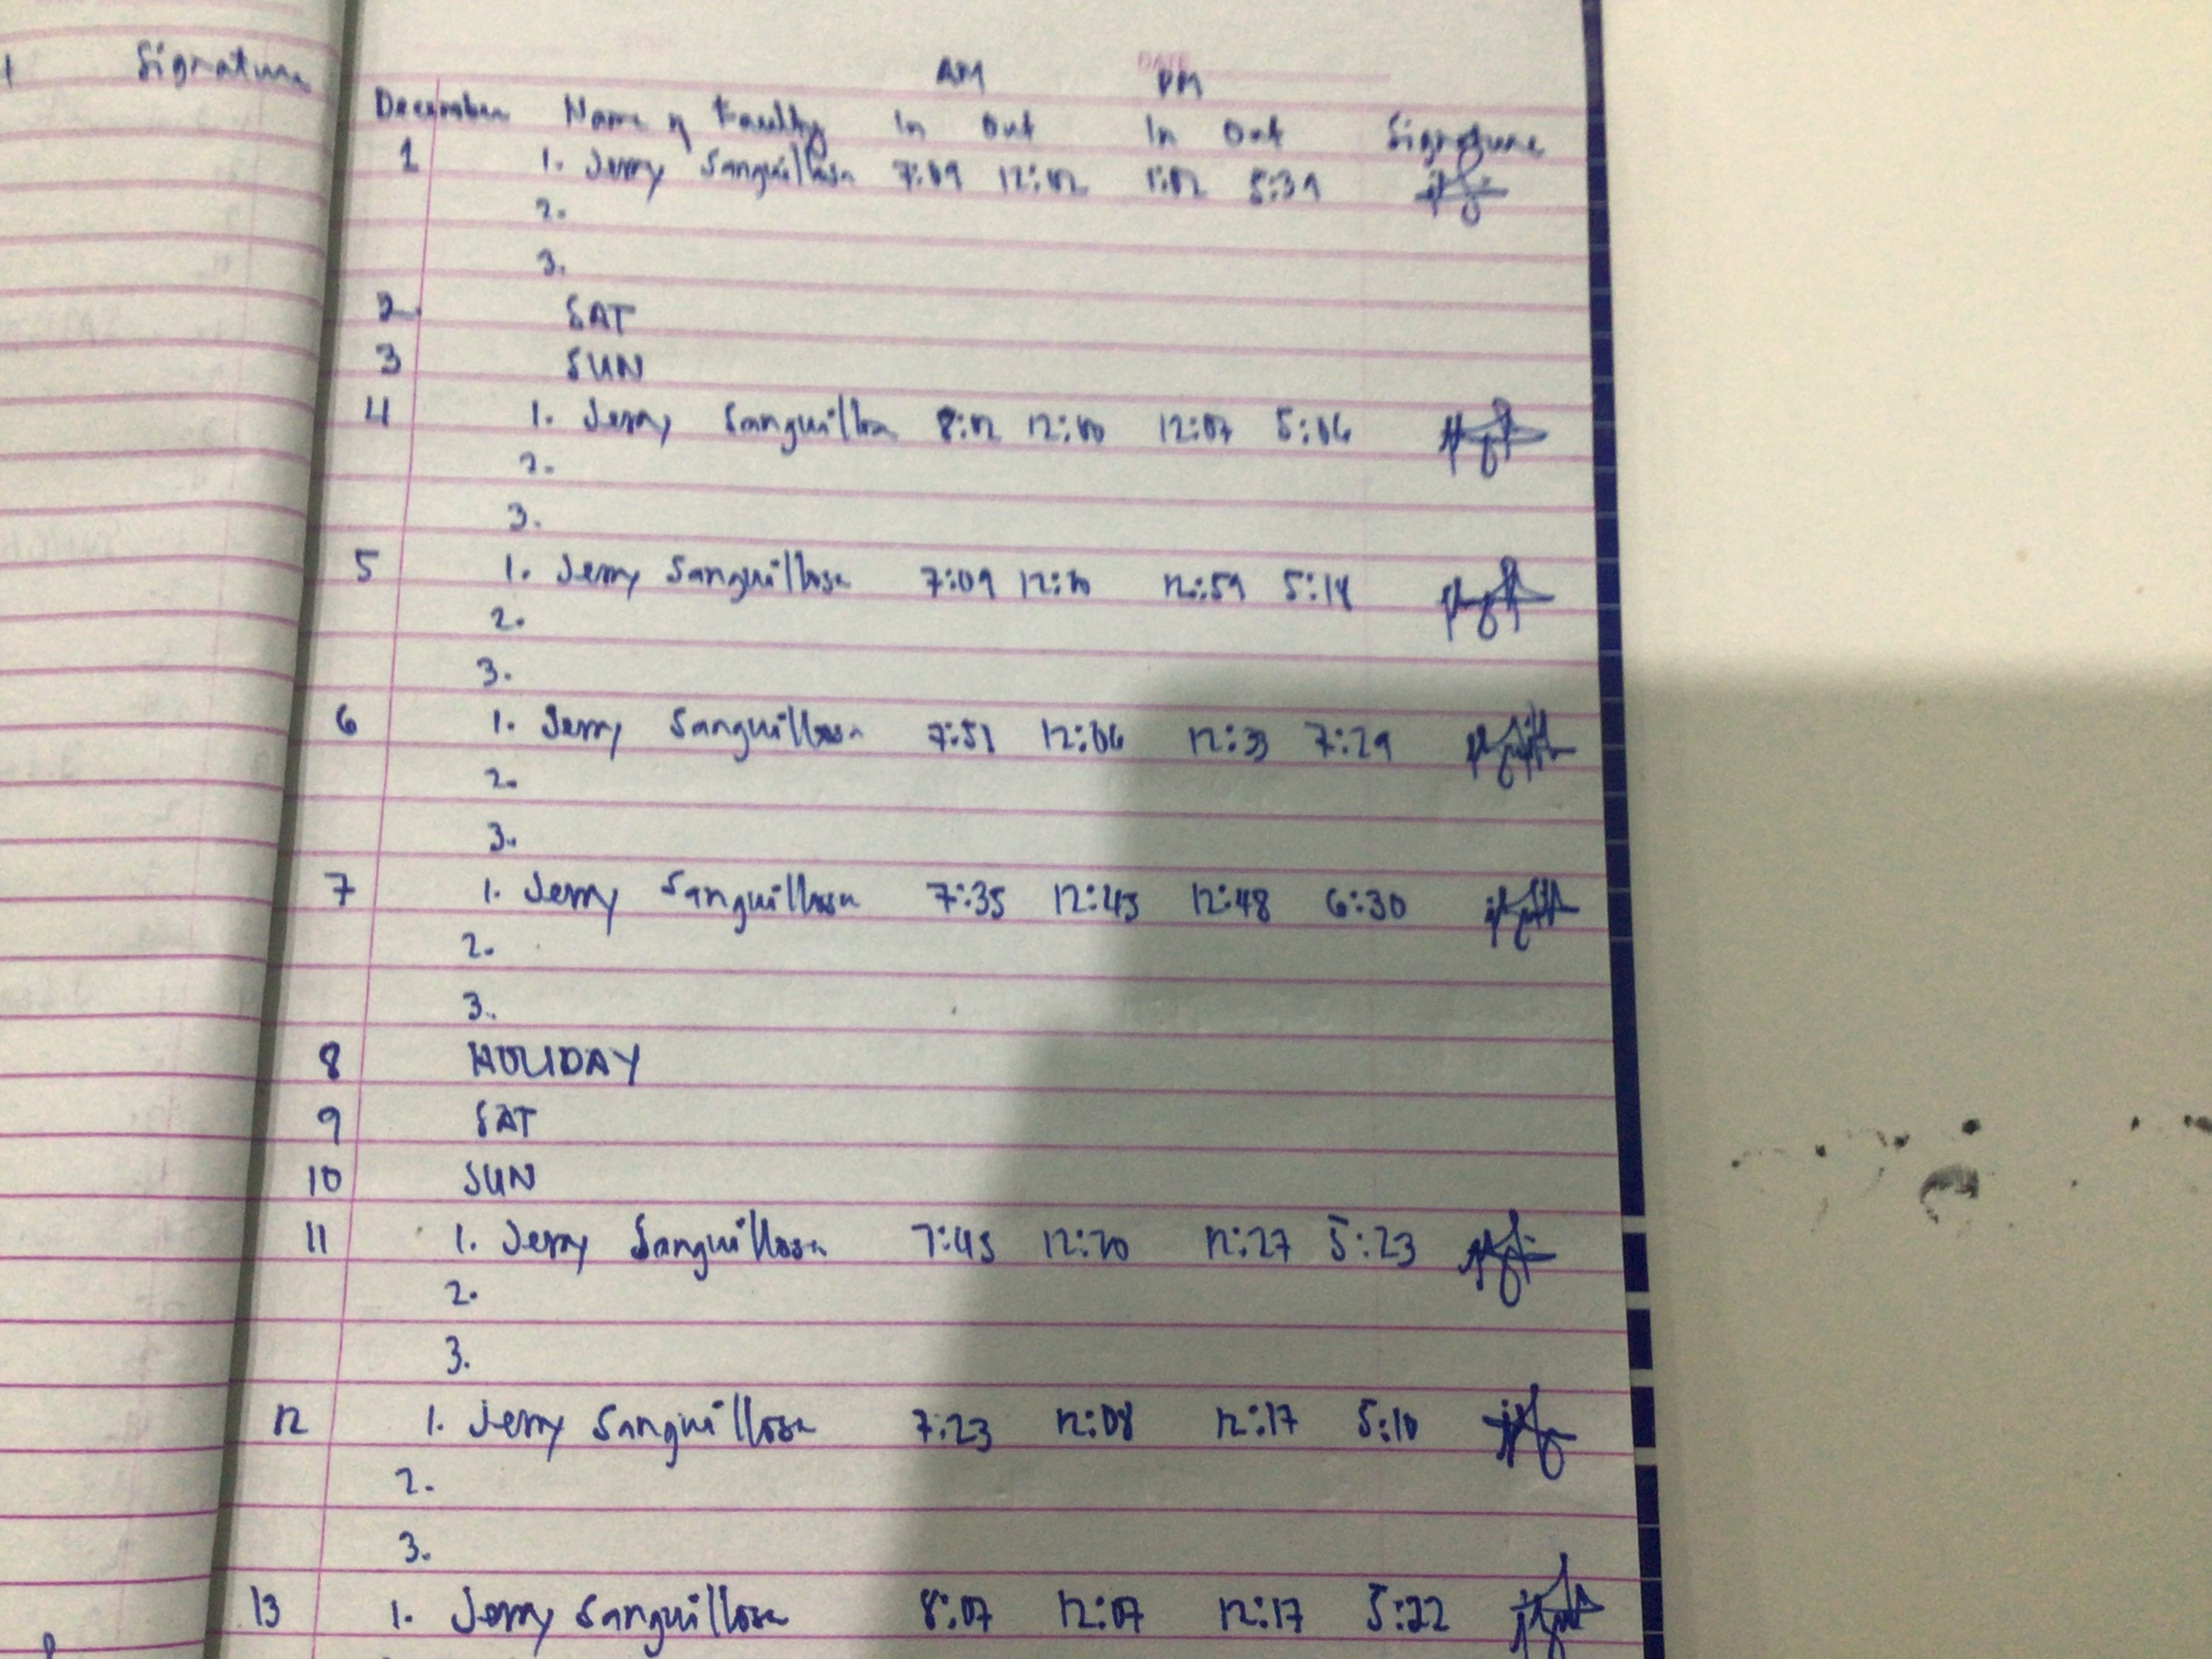 Signature
DATE
AM PM
December Name of Faculty In Out In Out Signature
1 1. Jerry Sanguillosa 7:09 12:02 1:02 5:39
2.
3.
2 SAT
3 SUN
4 1. Jerry Sanguillosa 8:02 12:00 12:07 5:06
2.
3.
5 1. Jerry Sanguillosa 7:09 12:59 5:18
2.
3.
6 1. Jerry Sanguillosa 7:51 12:06 12:33 7:29
2.
3.
7 1. Jerry Sanguillosa 7:35 12:45 12:48 6:30
2.
3.
8 HOLIDAY
9 SAT
10 SUN
11 1. Jerry Sanguillosa 7:45 12:20 12:27 5:23
2.
3.
12 1. Jerry Sanguillosa 7:23 12:08 12:17 5:10
2.
3.
13 1. Jerry Sanguillosa 8:07 12:07 12:17 5:22